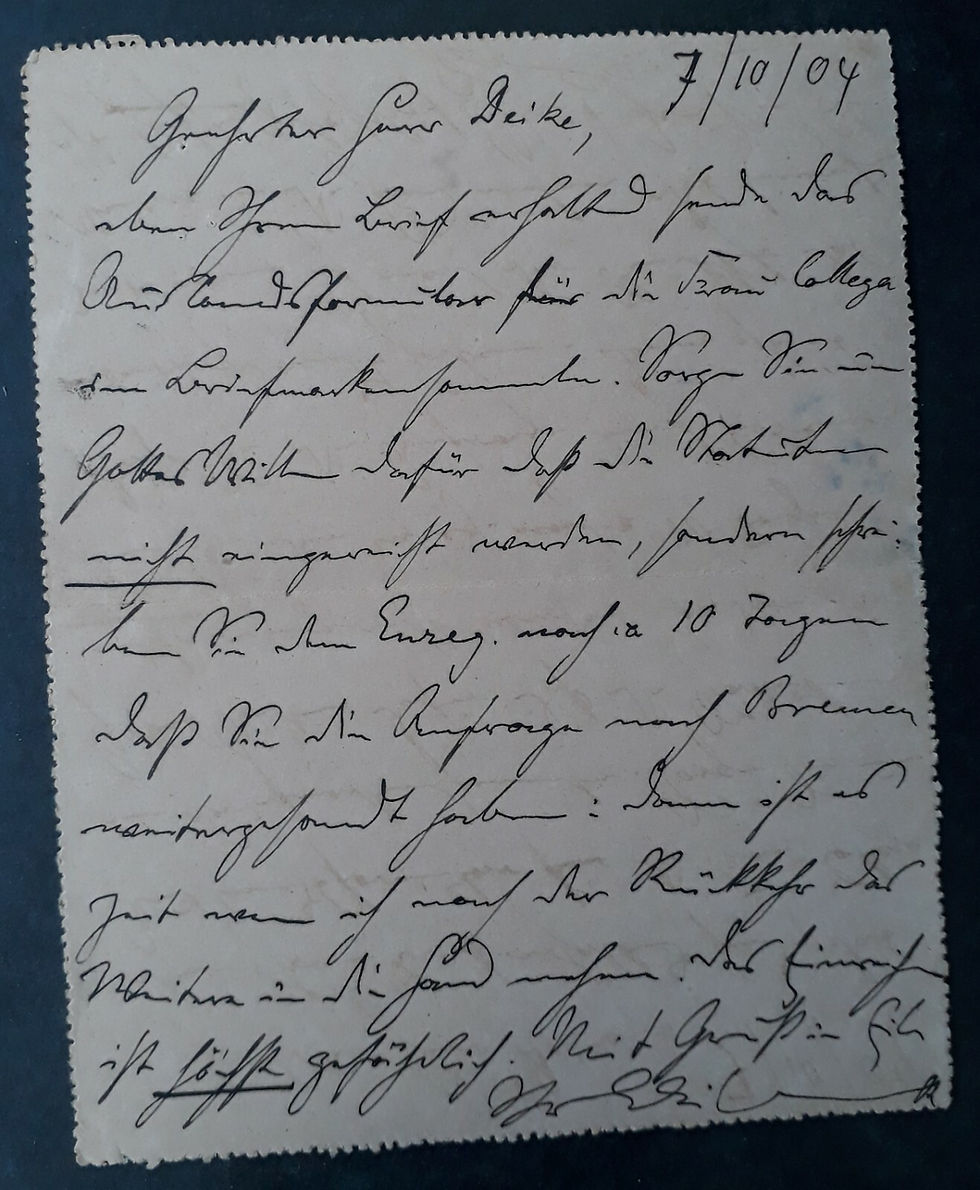 7/10/04
Geehrter Herr Deike,
eben Ihren Brief erhaltend sende das
Auslandsformular für die Frau Collega
im Briefmarkensammeln. Sorgen Sie um
Gottes Willen dafür daß die Statuten
nicht eingereicht werden, sondern schrei-
ben Sie dem Enreg. nach 10 Tagen
daß Sie die Anfrage nach Bremen
weitergesandt haben: dann ist es
Zeit wenn ich nach der Rückkehr das
Weitere in die Hand nehme. Das Einreichen
ist höchst gefährlich. Mit Gruß in Eile
Ihr